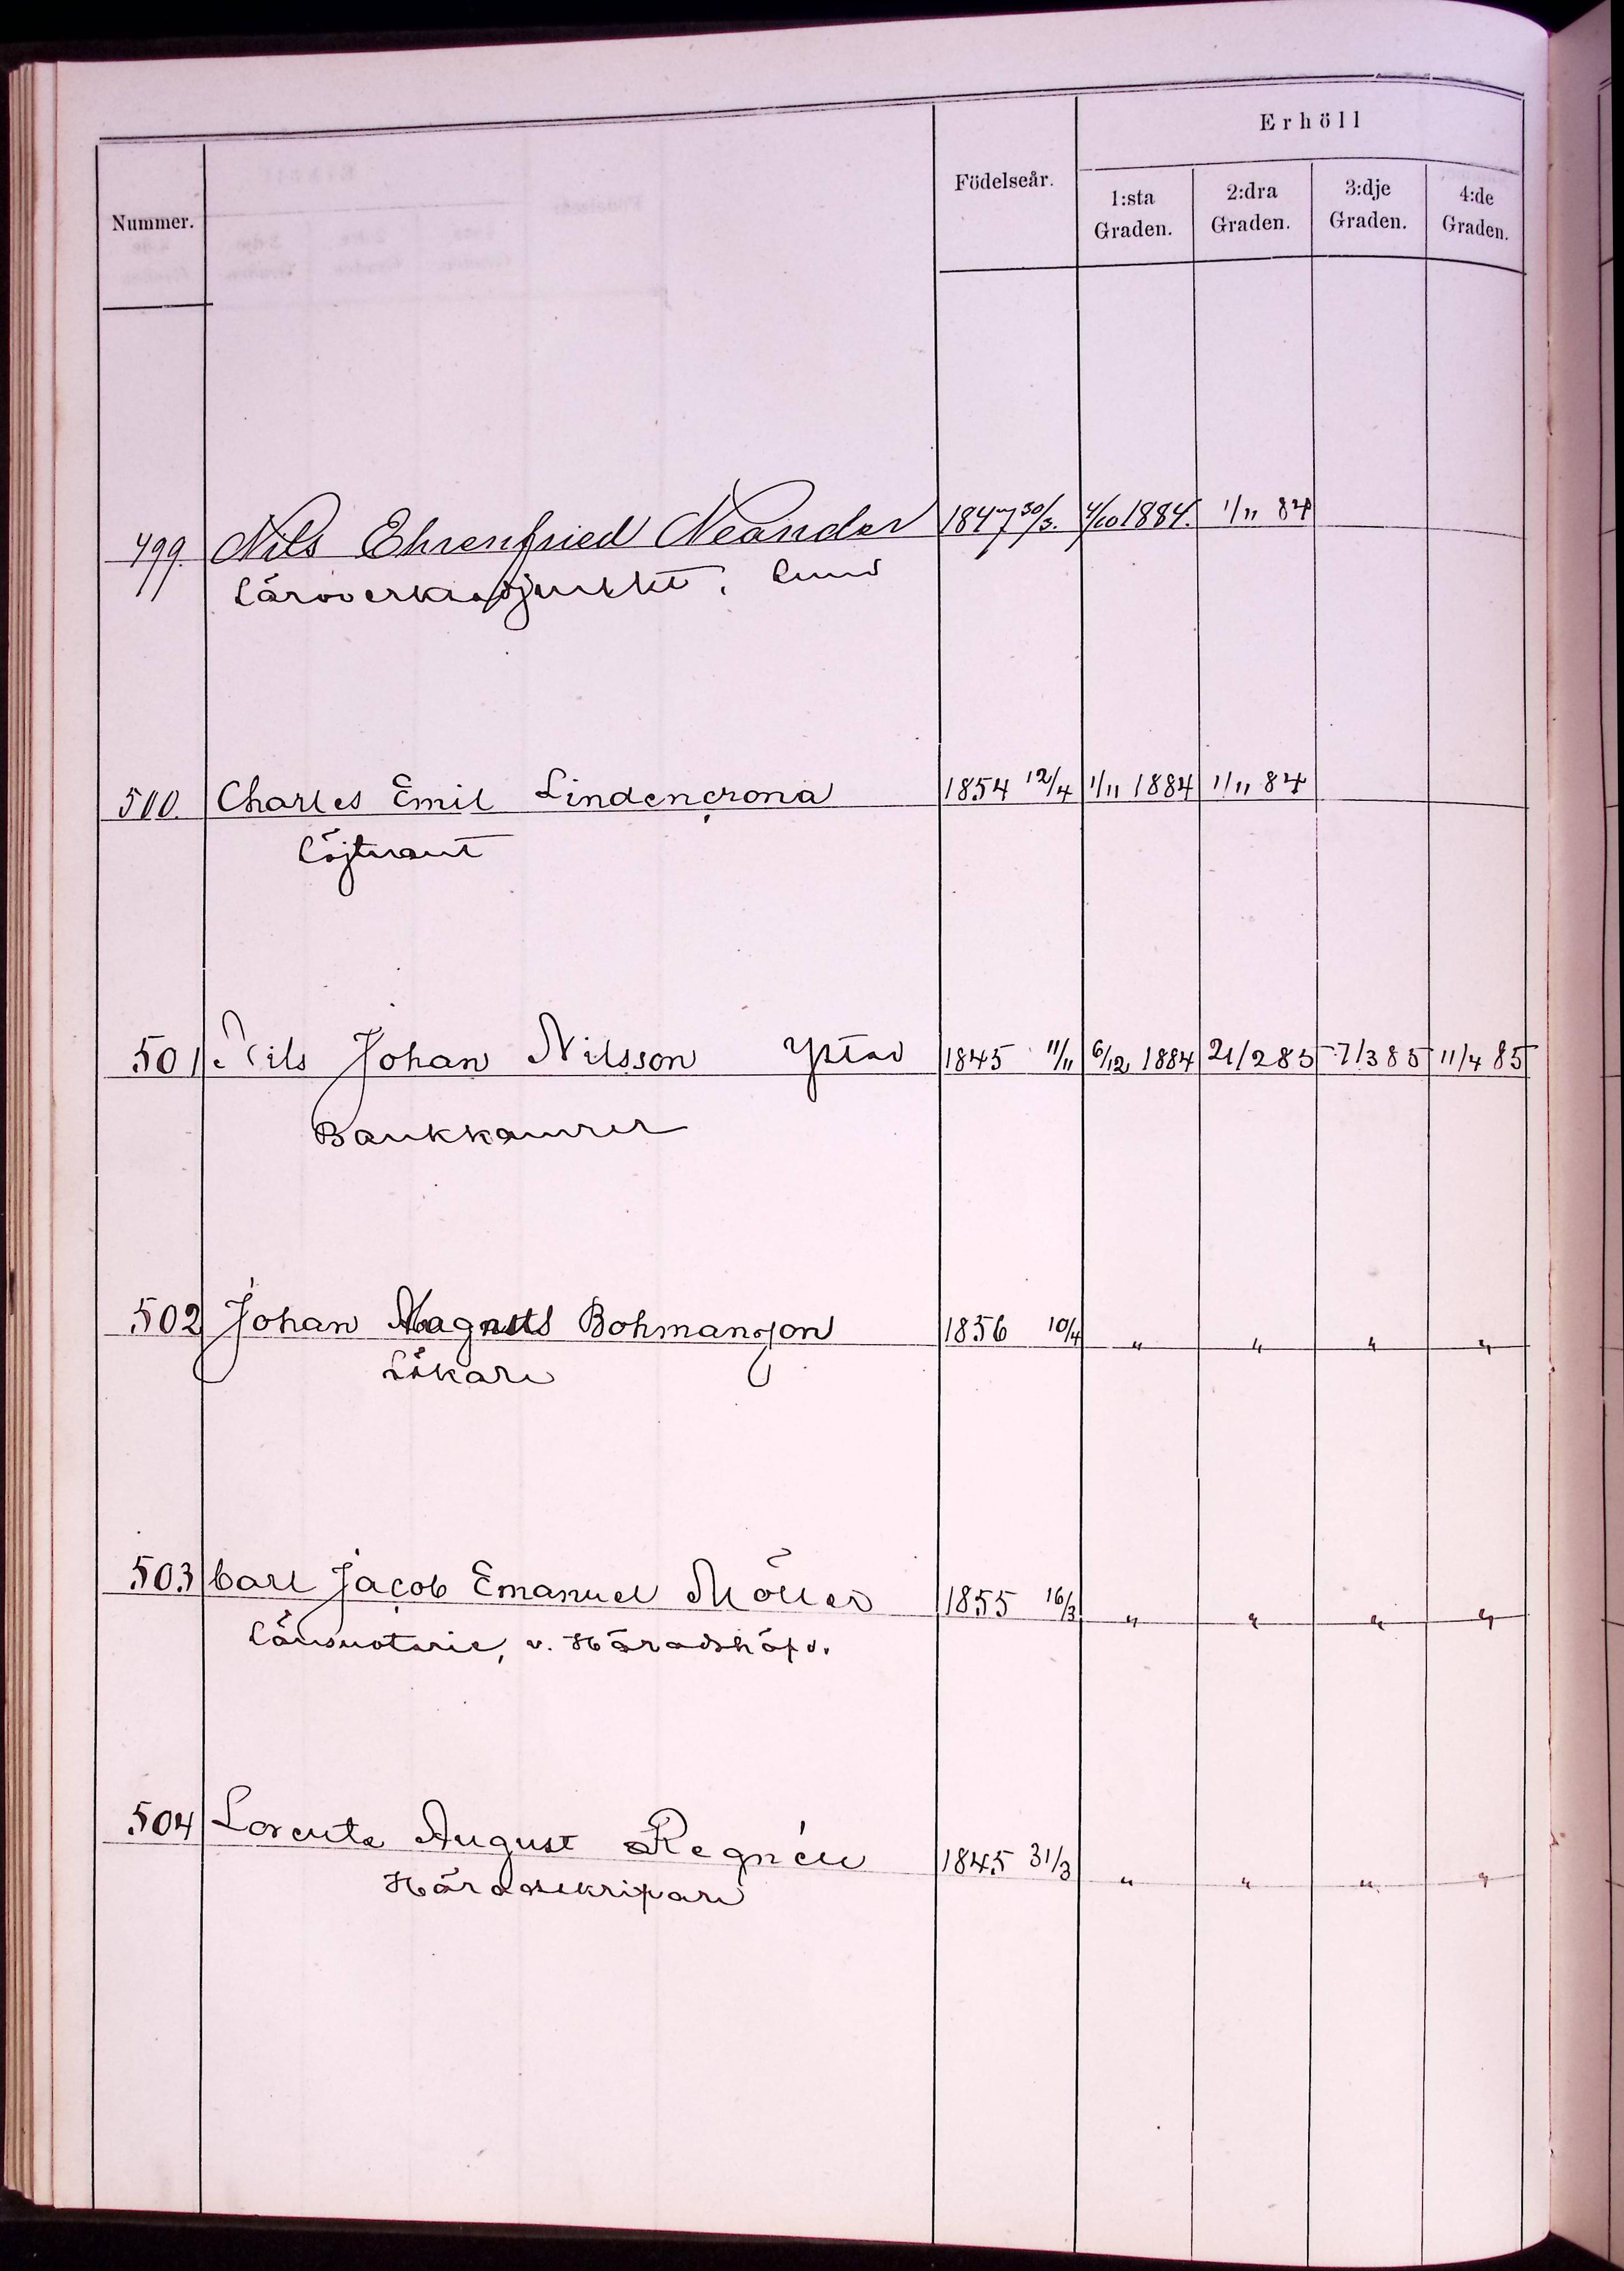 Erhöll
Nummer. Födelseår. 1:sta Graden. 2:dra Graden. 3:dje Graden. 4:de Graden.
499. Nils Ehrenfried Neander 1847 30/3. 4/10 1884. 1/11 84
Läroverksadjunkt, Lund
500. Charles Emil Lindencrona 1854 12/4 1/11 1884 1/11 84
Löjtnant
501. Nils Johan Nilsson Ystad 1845 11/11 6/12 1884 21/2 85 7/3 85 11/4 85
Bankkamrer
502 Johan Magnus Bohmansson 1856 10/4 " " " "
Läkare
503 Carl Jacob Emanuel Möller 1855 16/3 " " " "
Länsnotarie, v. Häradshöfd.
504 Lorentz August Regnéll 1845 31/3 " " " "
Häradsskrifvare